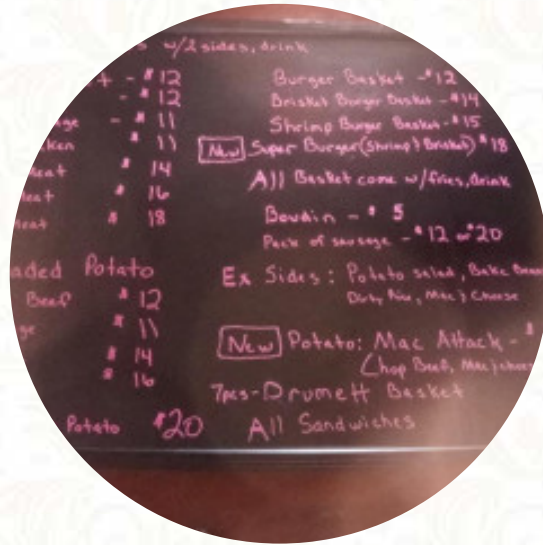 w/2 sides, drink
- $12
- $12
- $11
$11
$14
$16
$18
Potato
Beef $12
$11
$14
$16
Potato $20
Burger Basket - $12
Brisket Burger Basket - $14
Shrimp Burger Basket - $15
New Super Burger (Shrimp & Brisket) $18
All Basket come w/fries, drink
Boudin - $5
Pack of sausage - $12 or $20
Ex Sides: Potato salad, Bake
Dirty Rice, Mac & Cheese
New Potato: Mac Attack - $
(Chop Beef, Mac
7pcs-Drumett Basket
All Sandwiches